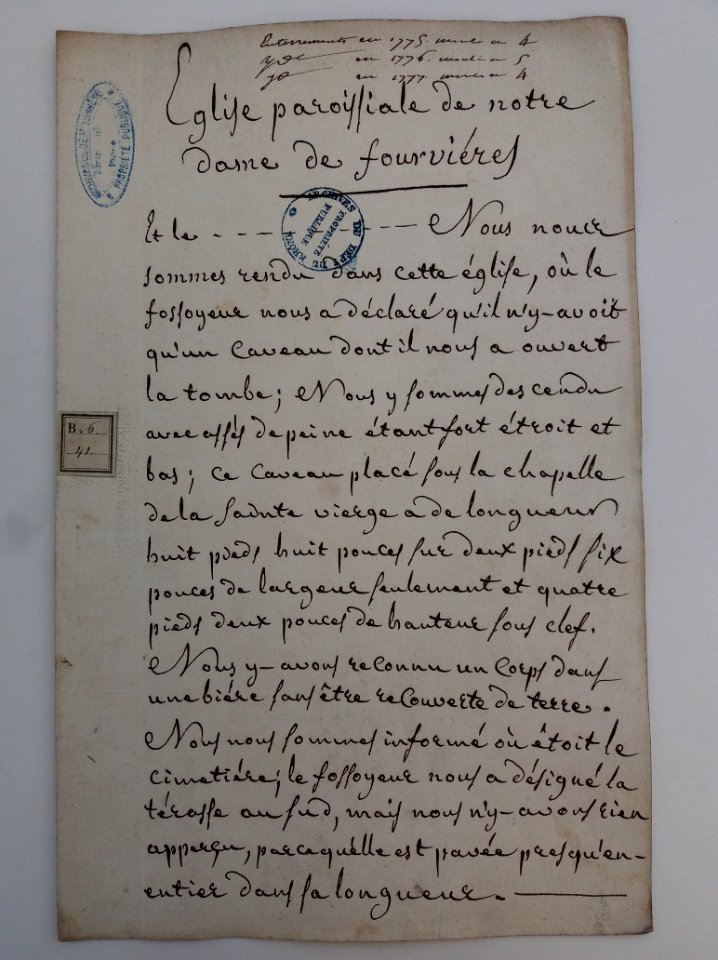 Enterrements en 1775. monte a 4
en 1776. monte a 5
en 1777. monte a 4
Eglise paroissiale de notre
dame de fourviéres
Et le - - - - - - - - Nous nouce
sommes rendu dans cette église, où le
fossoyeur nous a déclaré qu'il n'y-avoit
qu'un Caveau dont il nous a ouvert
la tombe; Nous y sommes descendu
avec assés de peine étant fort étroit et
bas; ce Caveau placé sous la chapelle
de la Sainte vierge a de longueur
huit pieds huit pouces sur deux pieds six
pouces de largeur seulement et quatre
pieds deux pouces de hauteur sous clef.
Nous y-avons reconnu un Corps dans
une biére sans être recouverte de terre.
Nous nous sommes informé où étoit le
cimetiére; le fossoyeur nous a désigné la
térasse au sud, mais nous n'y-avons rien
apperçu, parcequ'elle est pavée presqu'en-
entier dans sa longueur.
PROPRIÉTÉ PUBLIQUE
DU DEPT DU RHÔNE
PROPRIÉTÉ
PUBLIQUE
B. 6
41